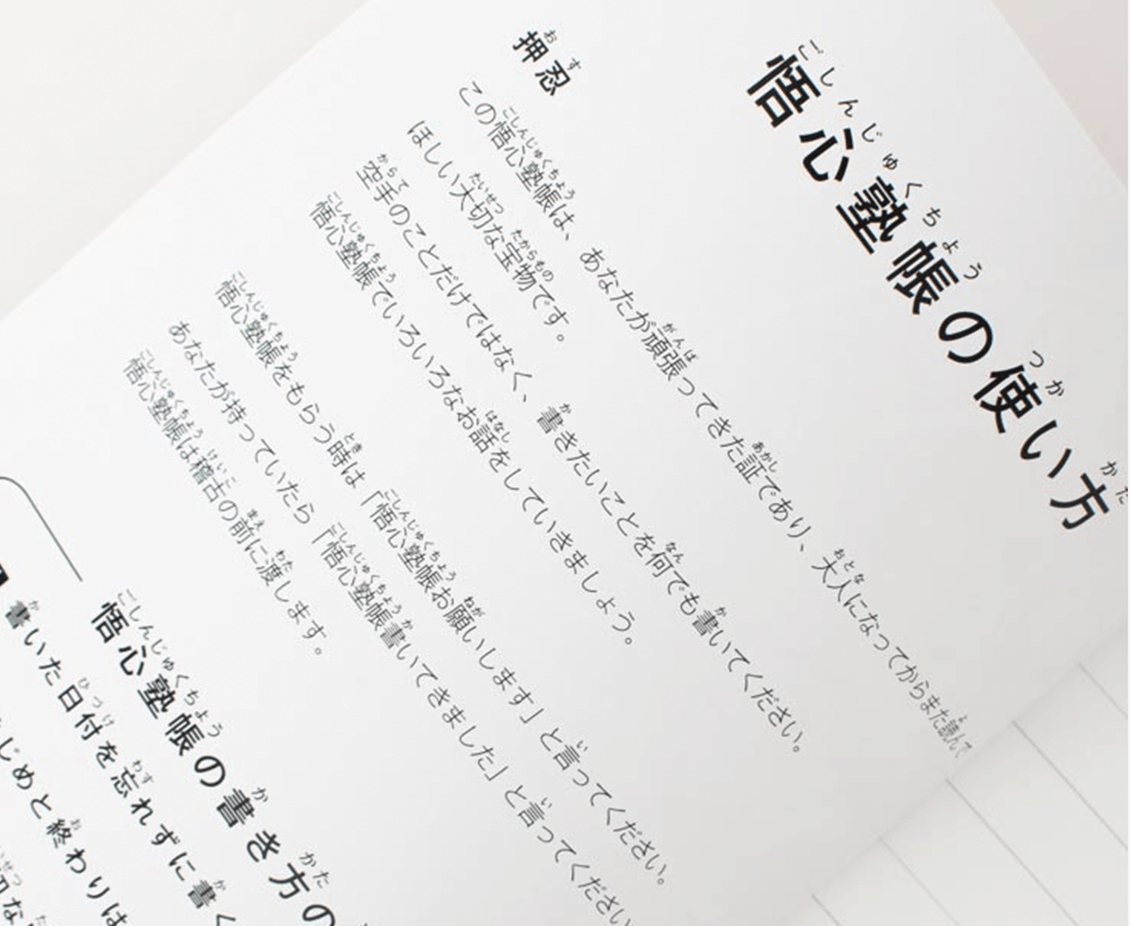 悟心塾帳の使い方
押忍
この悟心塾帳は、あなたが頑張ってきた証であり、大人になってからまた読んで
ほしい大切な宝物です。
空手のことだけではなく、書きたいことを何でも書いてください。
悟心塾帳でいろいろなお話をしていきましょう。
悟心塾帳をもらう時は「悟心塾帳お願いします」と言ってください。
あなたが持っていたら「悟心塾帳書いてきました」と言ってください
悟心塾帳は稽古の前に渡します。
悟心塾帳の書き方の
書いた日付を忘れずに書く
じめと終わりは